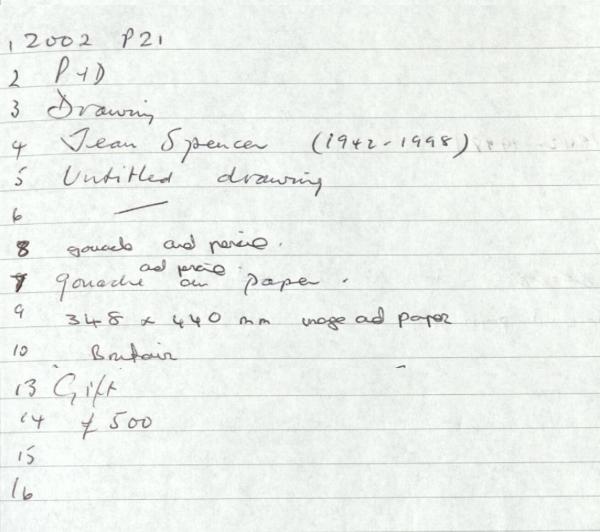 1 2002 P21
2 P+D
3 Drawing
4 Jean Spencer (1942-1998)
5 Untitled drawing
6 —
8 gouache and pencil.
7 gouache and pencil on paper.
9 348 x 440 mm image and paper
10 Britain
13 Gift
14 £500
15
16